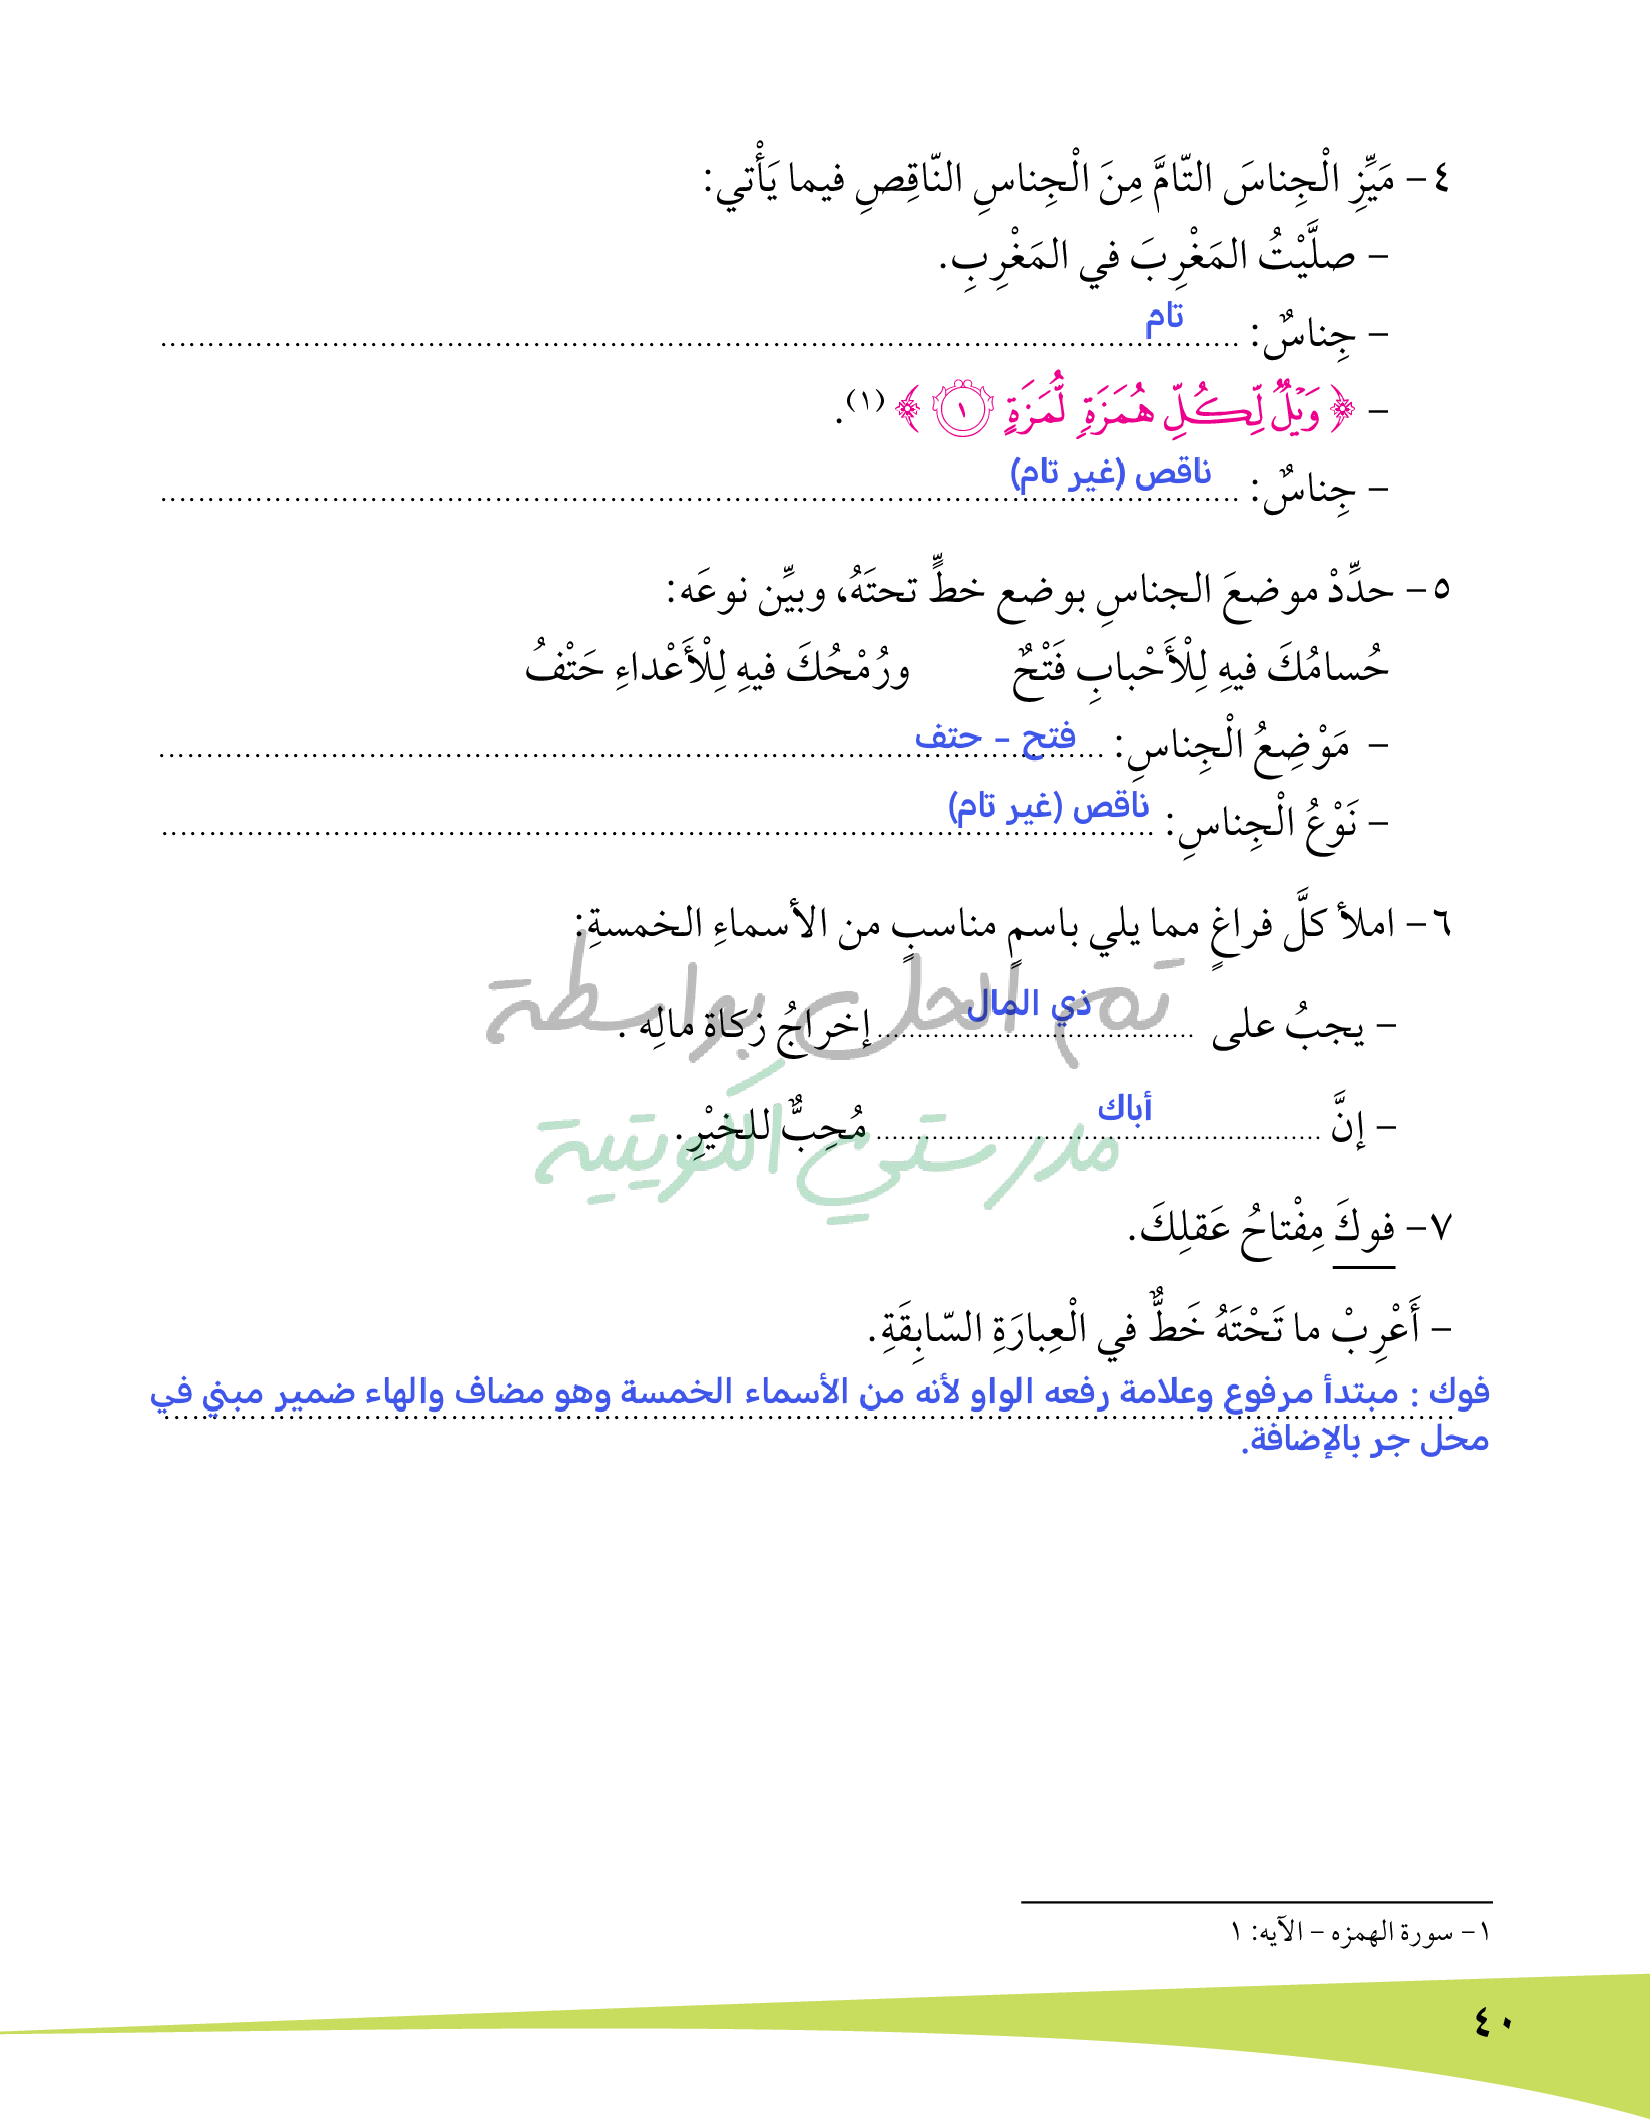 ٤- مَيِّزِ الْجِناسَ التّامَّ مِنَ الْجِناسِ النّاقِصِ فيما يَأْتي:
- صلَّيْتُ المَغْرِبَ في المَغْرِبِ.
- جِناسٌ: تام
- ﴿ وَيْلٌ لِّكُلِّ هُمَزَةٍ لُّمَزَةٍ ١ ﴾ (١).
- جِناسٌ: ناقص (غير تام)
٥- حدِّدْ موضعَ الجناسِ بوضع خطٍّ تحتَهُ، وبيِّن نوعَه:
حُسامُكَ فيهِ لِلْأَحْبابِ فَتْحٌ ورُمْحُكَ فيهِ لِلْأَعْداءِ حَتْفُ
- مَوْضِعُ الْجِناسِ: فتح - حتف
- نَوْعُ الْجِناسِ: ناقص (غير تام)
٦- املأ كلَّ فراغٍ مما يلي باسمٍ مناسبٍ من الأسماءِ الخمسةِ:
تم الحل بواسطة
- يجبُ على ذي المال إخراجُ زكاة مالِه .
مدرستي الكويتية
- إنَّ أباك مُحِبٌّ للخيْرِ.
٧- فوكَ مِفْتاحُ عَقلِكَ.
- أَعْرِبْ ما تَحْتَهُ خَطٌّ في الْعِبارَةِ السّابِقَةِ.
فوك : مبتدأ مرفوع وعلامة رفعه الواو لأنه من الأسماء الخمسة وهو مضاف والهاء ضمير مبني في
محل جر بالإضافة.
١- سورة الهمزه - الآيه: ١
٤٠